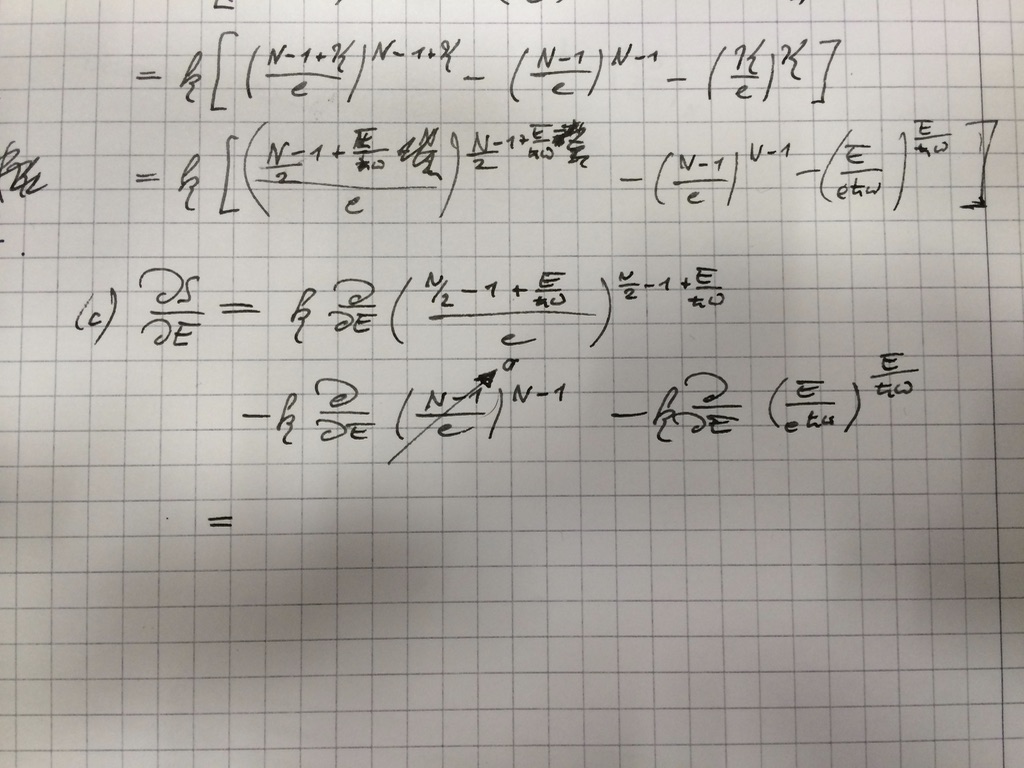 = k [ ( (N-1+K)/e )^(N-1+K) - ( (N-1)/e )^(N-1) - ( K/e )^K ]
= k [ ( (N/2 - 1 + E/ħω)/e )^(N/2 - 1 + E/ħω) - ( (N-1)/e )^(N-1) - ( E/(eħω) )^(E/ħω) ]
(c) ∂S/∂E = k ∂/∂E ( (N/2 - 1 + E/ħω)/e )^(N/2 - 1 + E/ħω)
- k ∂/∂E ( (N-1)/e )^(N-1) 0 - k ∂/∂E ( E/(eħω) )^(E/ħω)
=